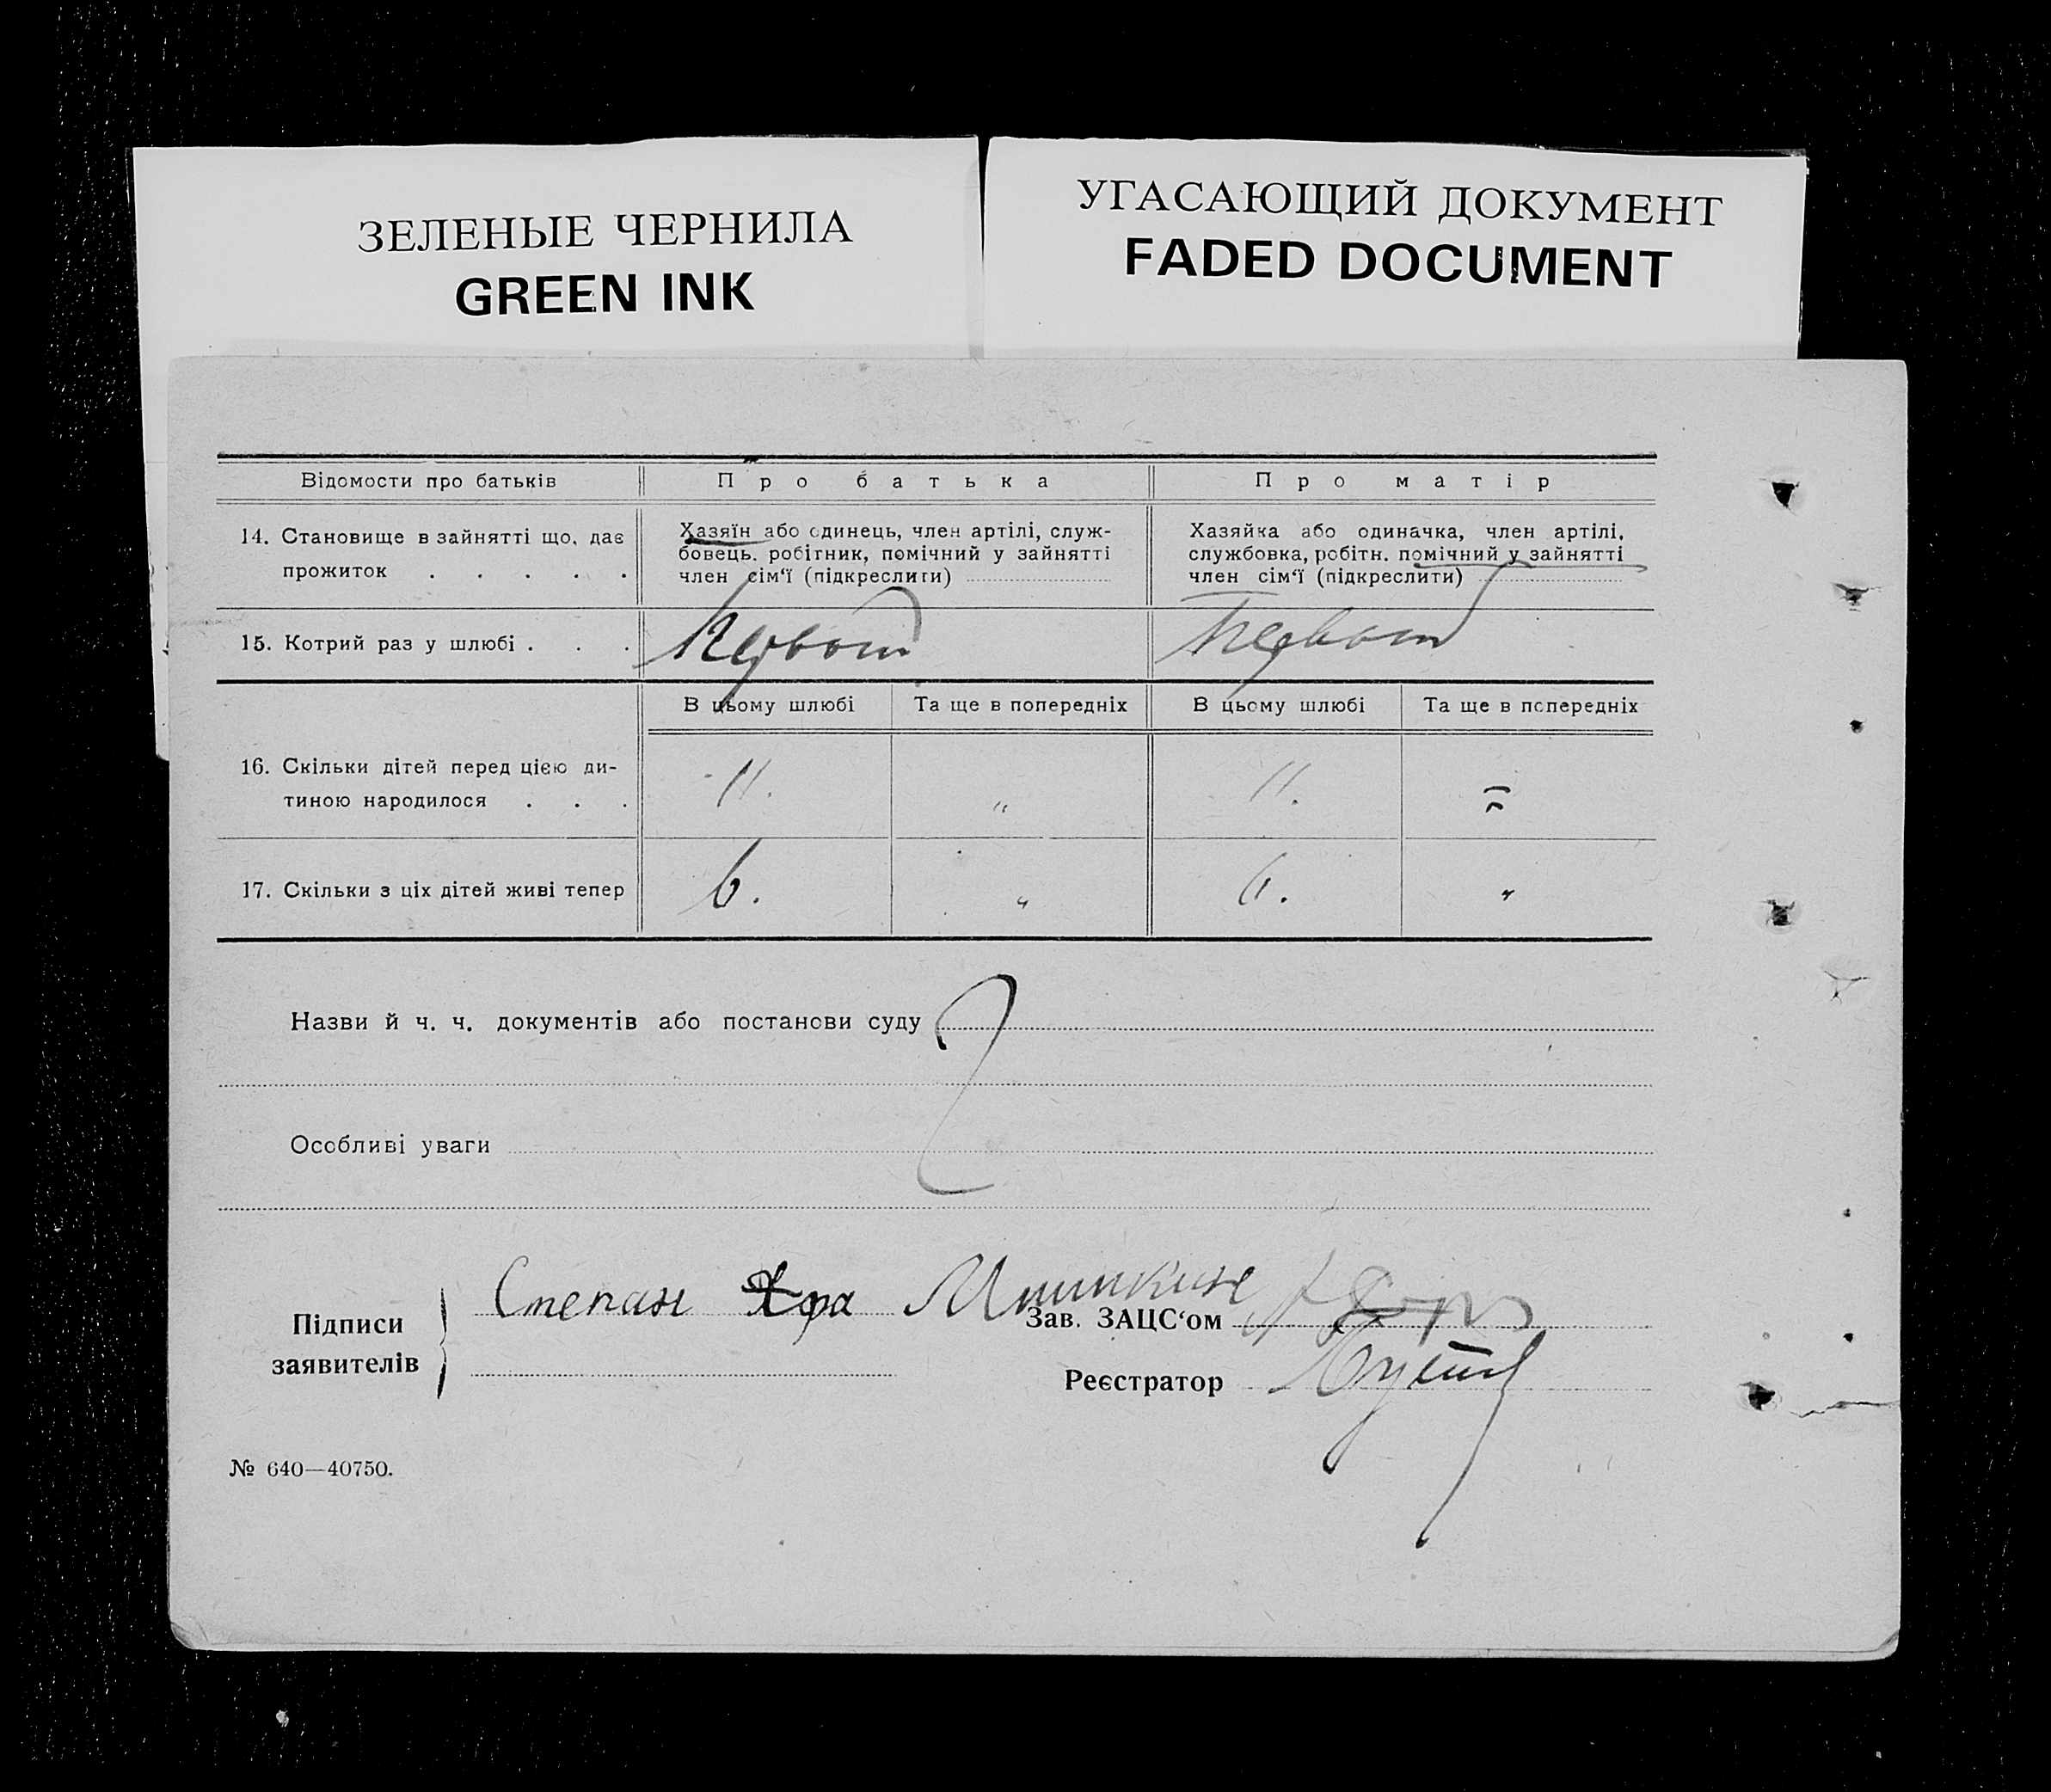 ЗЕЛЕНЫЕ ЧЕРНИЛА
GREEN INK
УГАСАЮЩИЙ ДОКУМЕНТ
FADED DOCUMENT
Відомости про батьків Про батька Про матір
14. Становище в зайнятті що, дає прожиток . . . . .
Хазяїн або одинець, член артілі, служ-
бовець. робітник, помічний у зайнятті
член сім'ї (підкреслити)
Хазяйка або одиначка, член артілі,
службовка, робітн. помічний у зайнятті
член сім'ї (підкреслити)
15. Котрий раз у шлюбі . . .
В цьому шлюбі Та ще в попередніх В цьому шлюбі Та ще в попередніх
16. Скільки дітей перед цією ди-
тиною народилося . . . 11. " 11.
17. Скільки з ціх дітей живі тепер 6. " 6. "
Назви й ч. ч. документів або постанови суду
Особливі уваги
Підписи
заявителів
Степан
Зав. ЗАЦС'ом
Реєстратор
№ 640—40750.